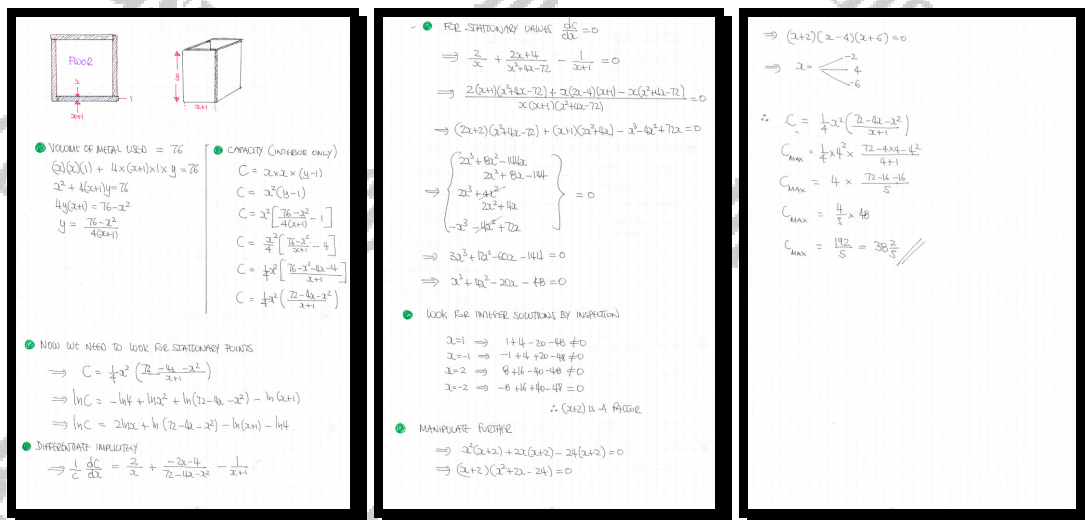 FLOOR
x
1
x+1
y
x+1
VOLUME OF METAL USED = 76
(x)(x)(1) + 4×(x+1)×1×y = 76
x² + 4(x+1)y = 76
4y(x+1) = 76-x²
y = (76-x²)/(4(x+1))
CAPACITY (INTERIOR ONLY)
C = x×x×(y-1)
C = x²(y-1)
C = x²[(76-x²)/(4(x+1)) - 1]
C = x²/4 [(76-x²)/(x+1) - 4]
C = ¼x²[(76-x²-4x-4)/(x+1)]
C = ¼x²((72-4x-x²)/(x+1))
NOW WE NEED TO LOOK FOR STATIONARY POINTS
⇒ C = ¼x²((72-4x-x²)/(x+1))
⇒ lnC = -ln4 + lnx² + ln(72-4x-x²) - ln(x+1)
⇒ lnC = 2lnx + ln(72-4x-x²) - ln(x+1) - ln4
DIFFERENTIATE IMPLICITLY
⇒ 1/C dC/dx = 2/x + (-2x-4)/(72-4x-x²) - 1/(x+1)
FOR STATIONARY VALUES dC/dx = 0
⇒ 2/x + (2x+4)/(x²+4x-72) - 1/(x+1) = 0
⇒ (2(x+1)(x²+4x-72) + x(2x+4)(x+1) - x(x²+4x-72))/(x(x+1)(x²+4x-72)) = 0
⇒ (2x+2)(x²+4x-72) + (x+1)(2x²+4x) - x³-4x²+72x = 0
2x³ + 8x² - 144x
2x² + 8x - 144
⇒ 2x³ + 4x² = 0
2x² + 4x
-x³ - 4x² + 72x
⇒ 3x³ + 12x² - 60x - 144 = 0
⇒ x³ + 4x² - 20x - 48 = 0
LOOK FOR INTEGER SOLUTIONS BY INSPECTION
x=1 ⇒ 1+4-20-48 ≠ 0
x=-1 ⇒ -1+4+20-48 ≠ 0
x=2 ⇒ 8+16-40-48 ≠ 0
x=-2 ⇒ -8+16+40-48 = 0
∴ (x+2) IS A FACTOR
MANIPULATE FURTHER
⇒ x²(x+2) + 2x(x+2) - 24(x+2) = 0
⇒ (x+2)(x²+2x-24) = 0
⇒ (x+2)(x-4)(x+6) = 0
-2
⇒ x = 4
-6
∴ C = ¼x²((72-4x-x²)/(x+1))
C MAX = ¼×4² × (72-4×4-4²)/(4+1)
C MAX = 4 × (72-16-16)/5
C MAX = 4/5 × 48
C MAX = 192/5 = 38 2/5